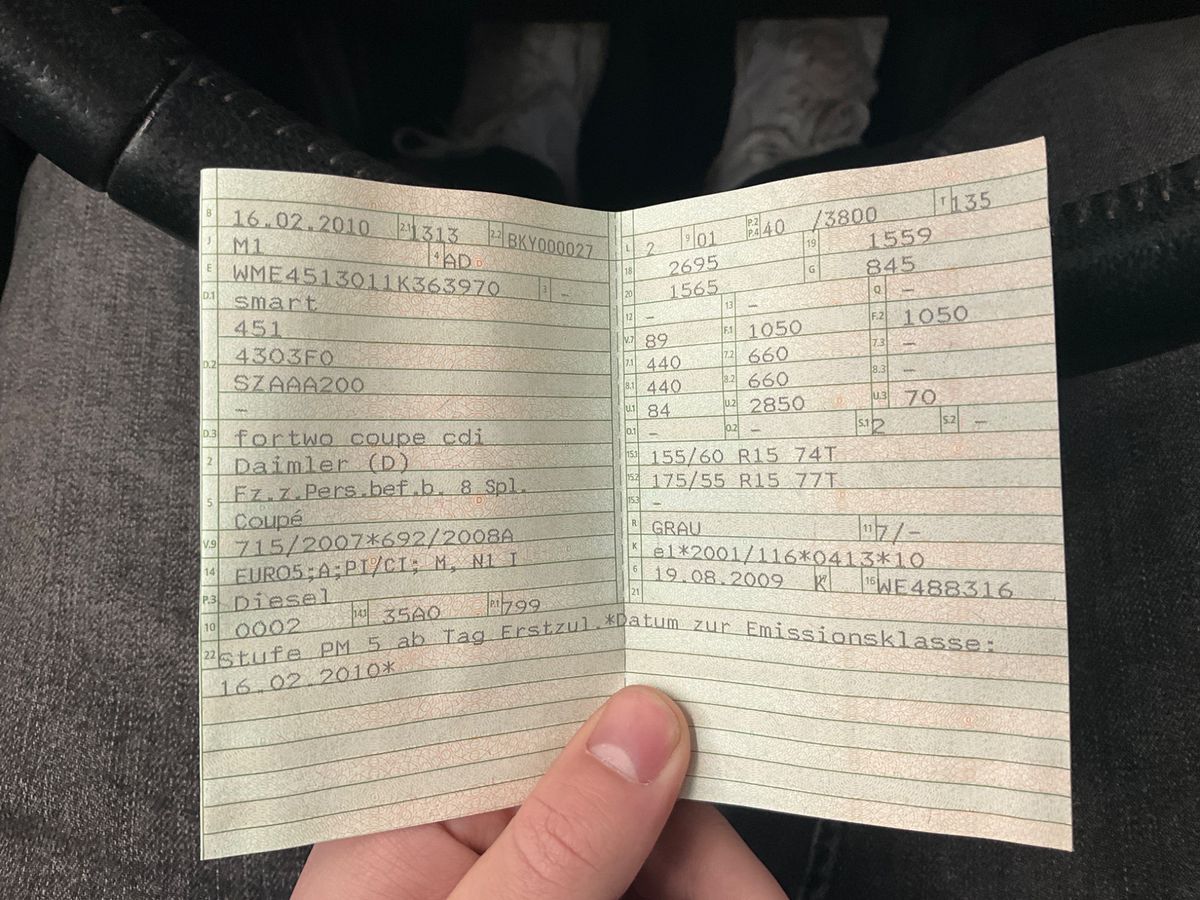 B 16.02.2010 2.1 1313 2.2 BKY000027
J M1 4 AD
E WME4513011K363970 3 –
D.1 smart
451
D.2 4303F0
SZAAA200
–
D.3 fortwo coupe cdi
2 Daimler (D)
5 Fz.z.Pers.bef.b. 8 Spl.
Coupé
V.9 715/2007*692/2008A
14 EURO5;A;PI/CI; M, N1 I
P.3 Diesel
10 0002 14.1 35A0 P.1 799
L 2 9 01 P.2 P.4 40 /3800 T 135
18 2695 19 1559
20 1565 G 845
12 – 13 – Q –
V.7 89 F.1 1050 F.2 1050
7.1 440 7.2 660 7.3 –
8.1 440 8.2 660 8.3 –
U.1 84 U.2 2850 U.3 70
O.1 – O.2 – S.1 2 S.2 –
15.1 155/60 R15 74T
15.2 175/55 R15 77T
15.3 –
R GRAU 11 7/–
K e1*2001/116*0413*10
6 19.08.2009 17 K 16 WE488316
21
22 Stufe PM 5 ab Tag Erstzul.*Datum zur Emissionsklasse:
16.02.2010*